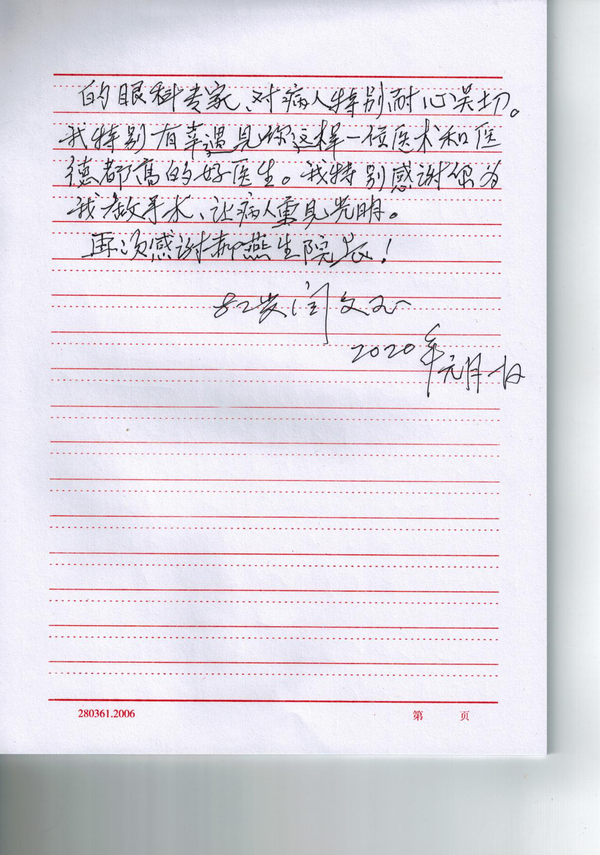 的眼科专家、对病人特别耐心关切。
我特别有幸遇见你这样一位医术和医
德都高的好医生。我特别感谢你为
我做手术、让病人重见光明。
再次感谢郝燕生院长！
82岁闫文
2020年元月一日
280361.2006
第 页